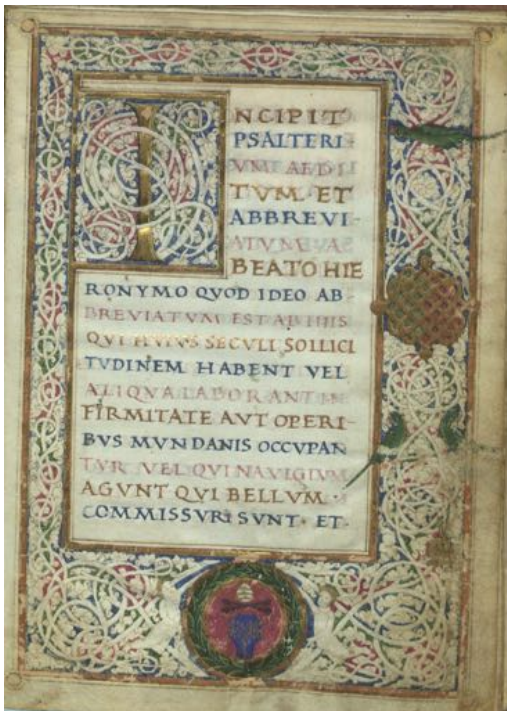 INCIPIT
PSALTERI-
VM AEDI
TVM ET
ABBREVI-
ATVM A
BEATO HIE
RONYMO QVOD IDEO AB-
BREVIATVM EST AB IIIS
QVI HVIVS SECVLI SOLLICI
TVDINEM HABENT VEL
ALIQVA LABORANT IN
FIRMITATE AVT OPERI
BVS MVNDANIS OCCVPAN
TVR VEL QVI NAVIGIVM
AGVNT QVI BELLVM ·
COMMISSVRI SVNT · ET·